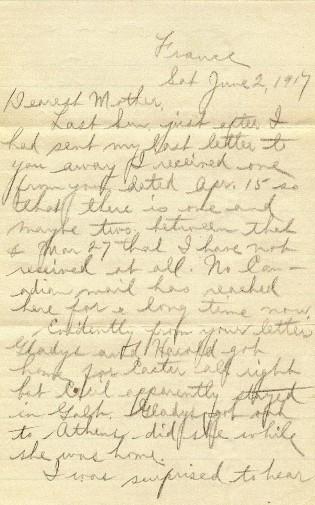 France
Sat June 2, 1917
Dearest Mother,
Last Sun. just after I
had sent my last letter to
you away I received one
from you, dated Apr. 15 so
that there is one and
maybe two, between that
& Mar 27 that I have not
received at all. No Can-
adian mail has reached
here for a long time now.
Evidently from your letter
Gladys and Harold got
home for Easter all right
but Cecil apparently stayed
in Galt. Gladys got up
to Athens did she while
she was home.
I was surprised to hear